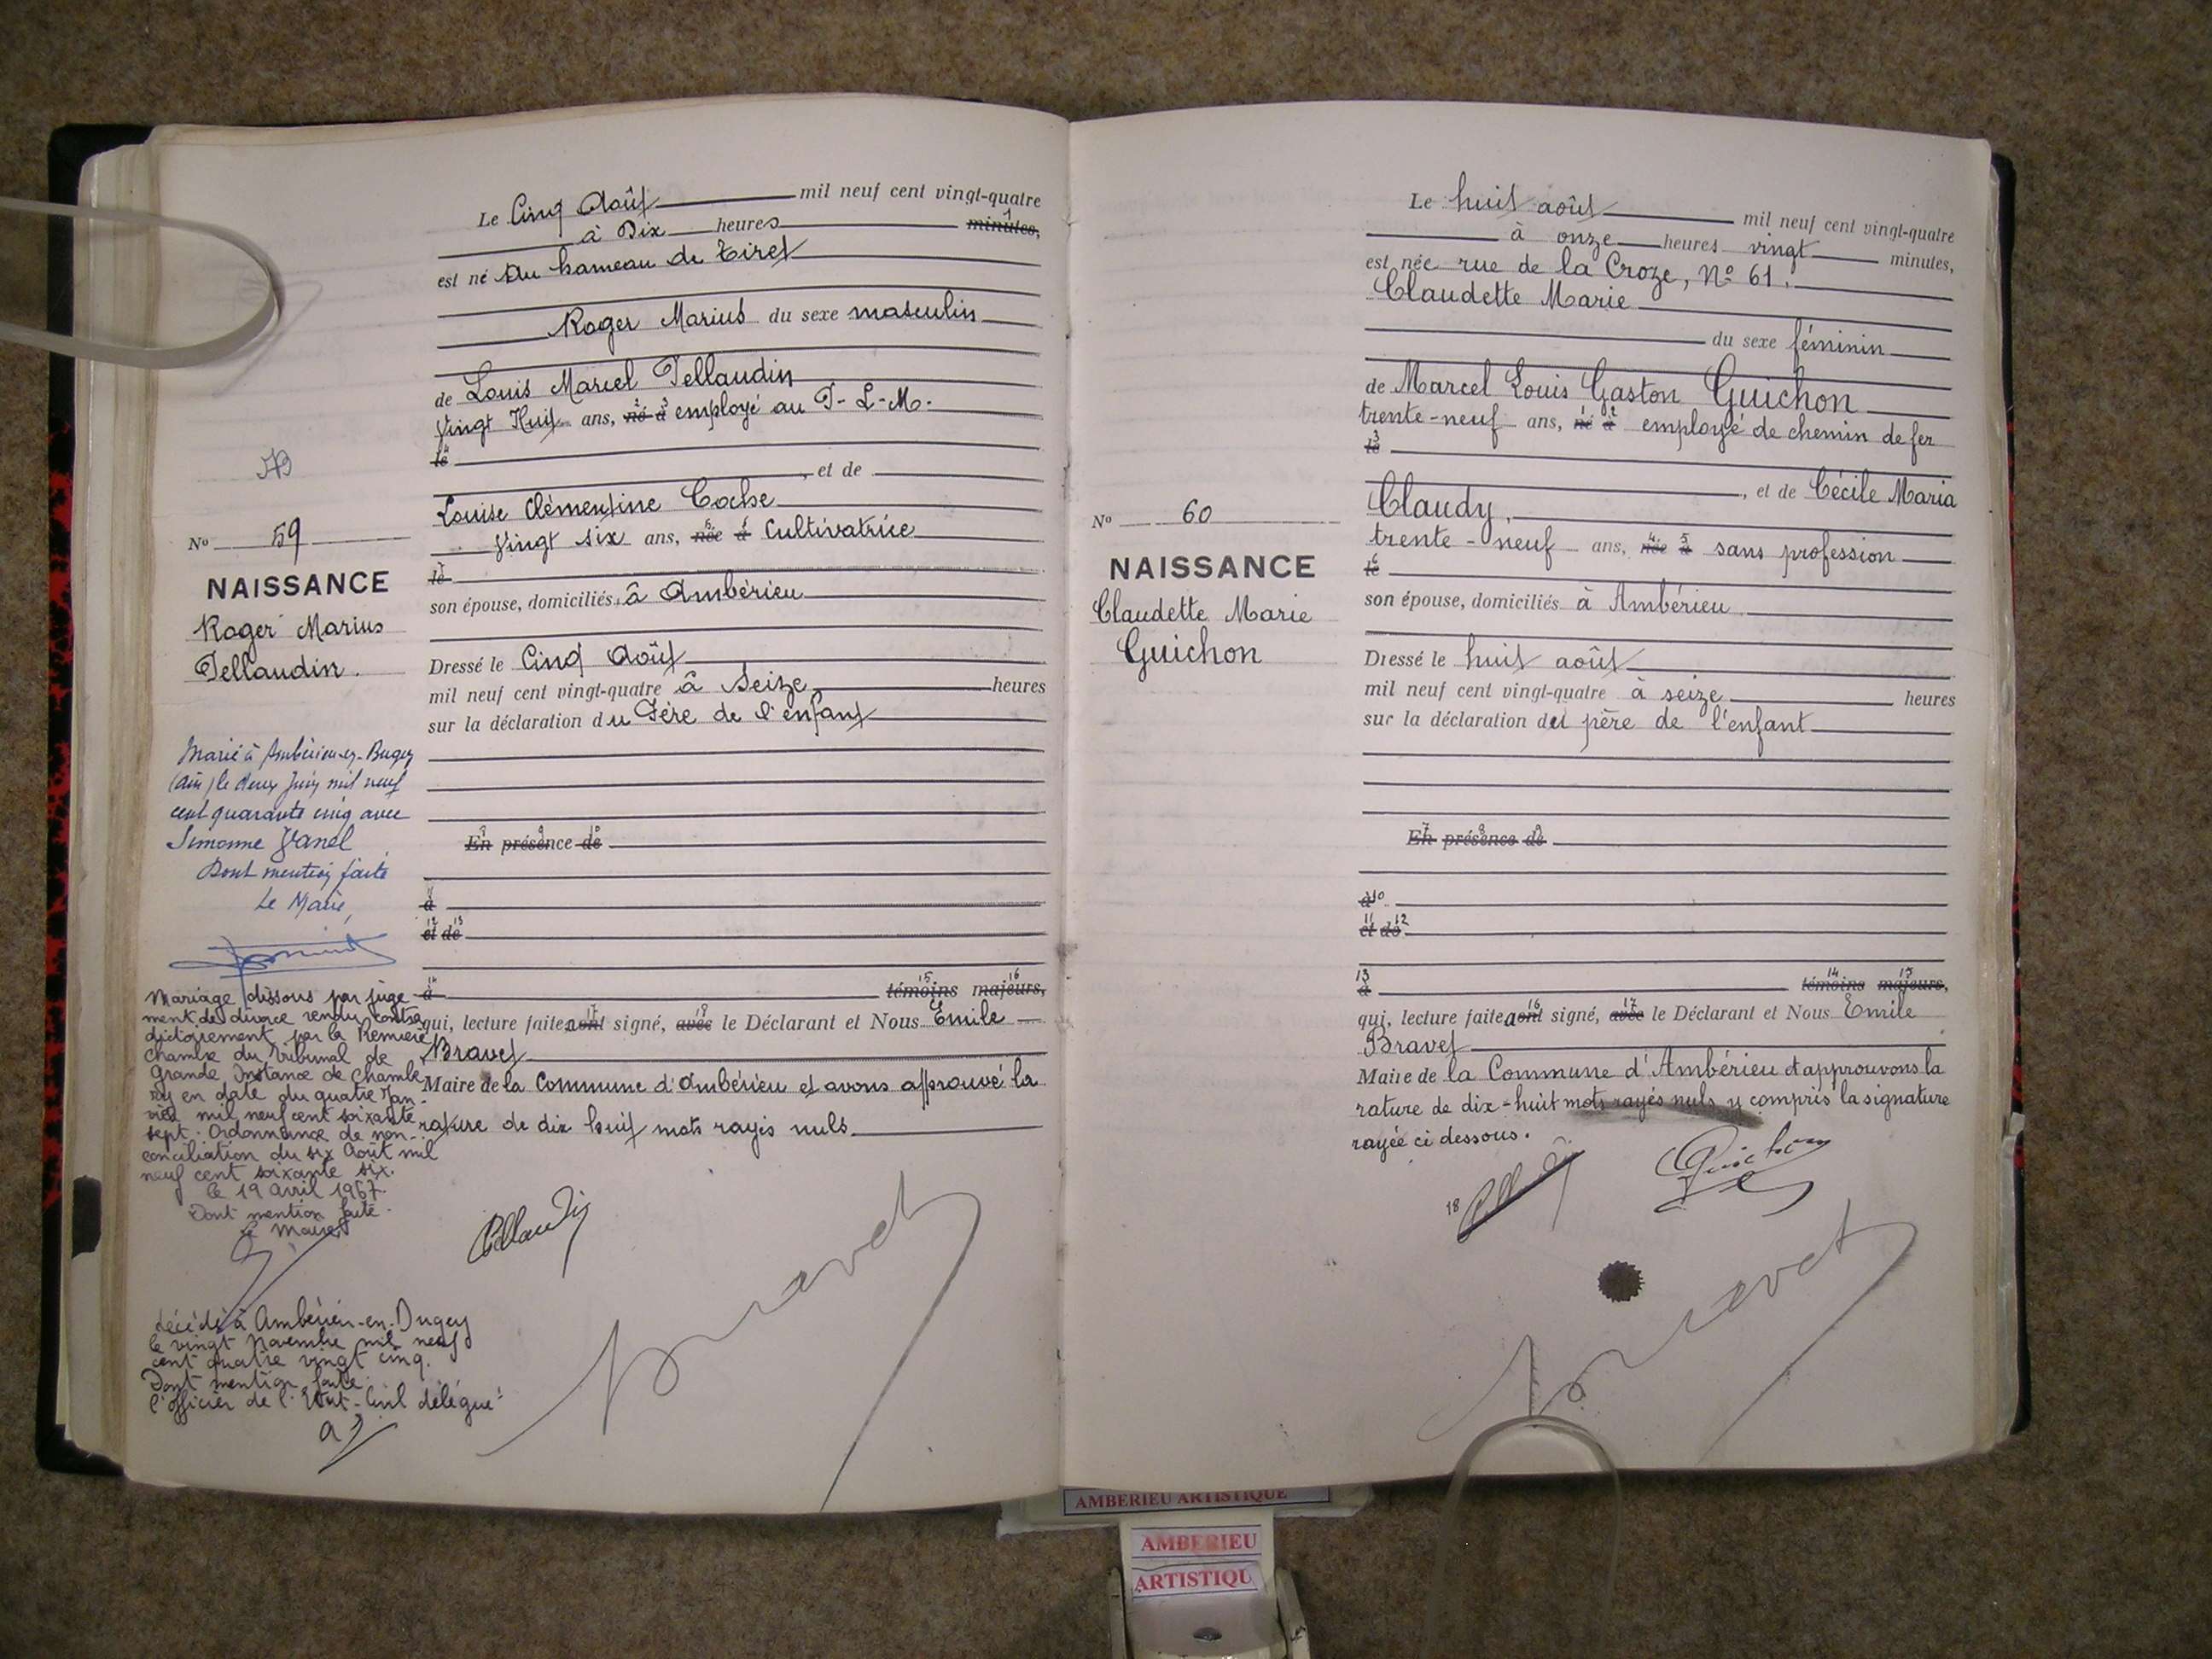 Le Cinq Août mil neuf cent vingt-quatre
à Dix heures minutes,
est né Au hameau de Tiret
Roger Marius du sexe masculin
de Louis Marcel Pellaudin
Vingt Huit ans, né à employé au P-L-M.
le
, et de
Louise Clémentine Coche
Vingt six ans, née à Cultivatrice
le
son épouse, domiciliés à Ambérieu
Dressé le Cinq Août
mil neuf cent vingt-quatre à Seize heures
sur la déclaration du Père de l'enfant
En présence de
à
et de
à témoins majeurs,
qui, lecture faite ont signé, avec le Déclarant et Nous Emile
Bravet
Maire de la Commune d'Ambérieu et avons approuvé la
rature de dix huit mots rayés nuls.
Pellaudin
Bravet
No 59
NAISSANCE
Roger Marius
Pellaudin.
Marié à Ambérieu-en-Bugey
(Ain) le deux Juin mil neuf
cent quarante cinq avec
Simonne Vanel
Dont mention faite
Le Maire,
Mariage dissous par juge-
ment de divorce rendu contra-
dictoirement par la Première
chambre du Tribunal de
Grande Instance de Chambé-
ry en date du quatre Jan-
vier mil neuf cent soixante
sept. Ordonnance de non-
conciliation du six Août mil
neuf cent soixante six.
le 19 avril 1967.
Dont mention faite.
Le Maire
décédé à Ambérieu-en-Bugey
le vingt Novembre mil neuf
cent quatre vingt cinq.
Dont mention faite.
l'officier de l'Etat-Civil délégué
Le huit août mil neuf cent vingt-quatre
à onze heures vingt minutes,
est née rue de la Croze, No 61.
Claudette Marie
du sexe féminin
de Marcel Louis Gaston Guichon
trente-neuf ans, né à employé de chemin de fer
le
, et de Cécile Maria
Claudy,
trente-neuf ans, née à sans profession
le
son épouse, domiciliés à Ambérieu
Dressé le huit août
mil neuf cent vingt-quatre à seize heures
sur la déclaration du père de l'enfant
En présence de
à
et de
à témoins majeurs,
qui, lecture faite ont signé, avec le Déclarant et Nous Emile
Bravet
Maire de la Commune d'Ambérieu et approuvons la
rature de dix-huit mots rayés nuls y compris la signature
rayée ci dessous.
18
Guichon
Bravet
No 60
NAISSANCE
Claudette Marie
Guichon
AMBERIEU ARTISTIQUE
AMBERIEU
ARTISTIQU